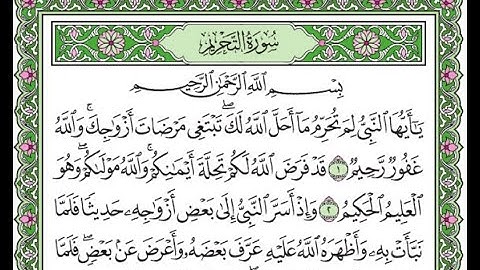 سُورَةُ التَّحْرِيمِ
بِسْمِ اللَّهِ الرَّحْمَٰنِ الرَّحِيمِ
يَٰٓأَيُّهَا ٱلنَّبِيُّ لِمَ تُحَرِّمُ مَآ أَحَلَّ ٱللَّهُ لَكَۖ تَبۡتَغِي مَرۡضَاتَ أَزۡوَٰجِكَۚ وَٱللَّهُ
غَفُورٞ رَّحِيمٞ ١ قَدۡ فَرَضَ ٱللَّهُ لَكُمۡ تَحِلَّةَ أَيۡمَٰنِكُمۡۚ وَٱللَّهُ مَوۡلَىٰكُمۡۖ وَهُوَ
ٱلۡعَلِيمُ ٱلۡحَكِيمُ ٢ وَإِذۡ أَسَرَّ ٱلنَّبِيُّ إِلَىٰ بَعۡضِ أَزۡوَٰجِهِۦ حَدِيثٗا فَلَمَّا
نَبَّأَتۡ بِهِۦ وَأَظۡهَرَهُ ٱللَّهُ عَلَيۡهِ عَرَّفَ بَعۡضَهُۥ وَأَعۡرَضَ عَنۢ بَعۡضٖۖ فَلَمَّا